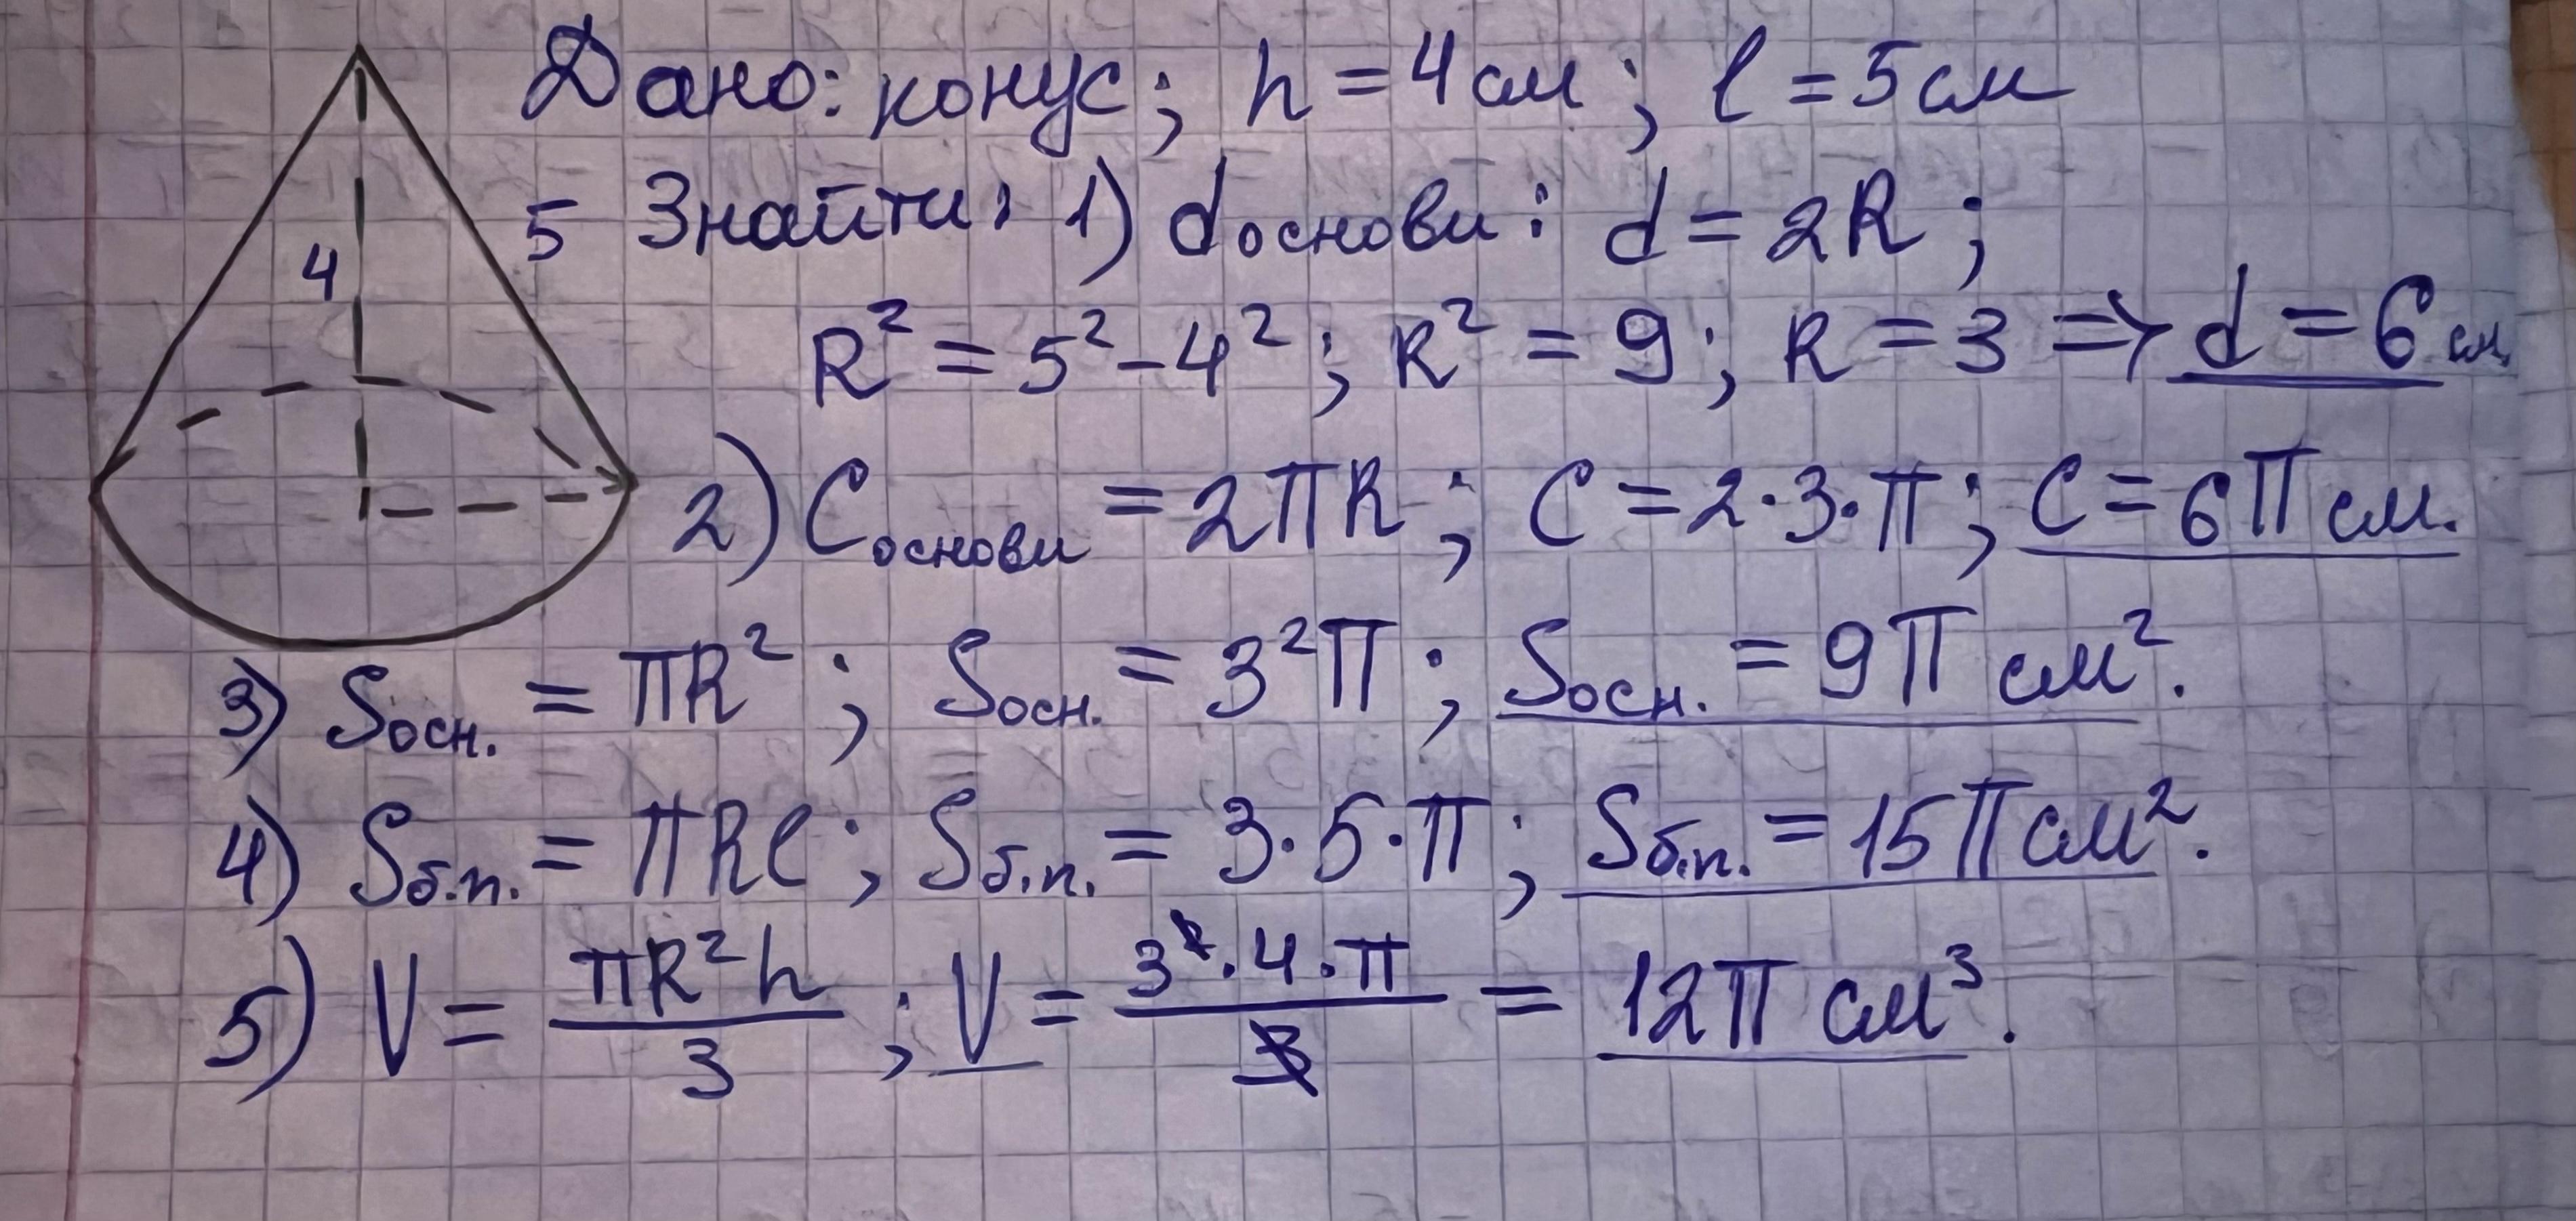 Дано: конус; h = 4 см; l = 5 см
5 Знайти: 1) d основи: d = 2R;
4
R² = 5² - 4²; R² = 9; R = 3 => d = 6 см
2) C основи = 2πR; C = 2·3·π; C = 6π см.
3) Sосн. = πR²; Sосн. = 3²π; Sосн. = 9π см².
4) Sб.п. = πRl; Sб.п. = 3·5·π; Sб.п. = 15π см².
5) V = πR²h / 3; V = 3²·4·π / 3 = 12π см³.